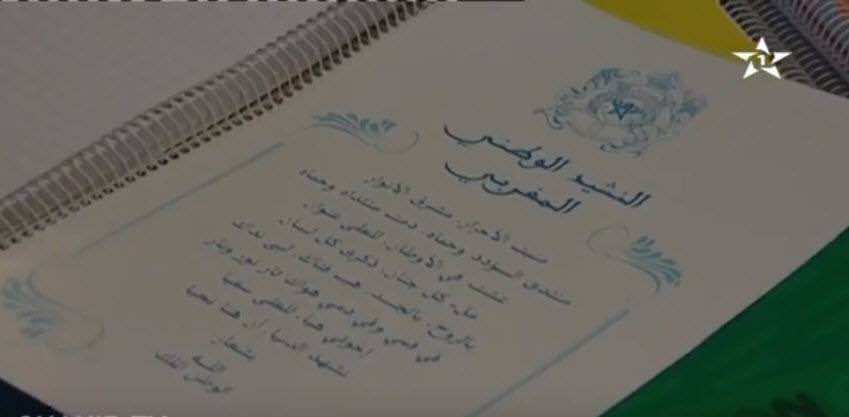 النشيد الوطني
المغربي
منبت الأحرار مشرق الأنوار
منتدى السؤدد وحماه دمت منتداه وحماه
عشت في الأوطان للعلى عنوان
ملء كل جنان ذكرى كل لسان
بالروح بالجسد هب فتاك لبى نداك
في فمي وفي دمي هواك ثار نور ونار
إخوتي هيا للعلى سعيا
نشهد الدنيا أن هنا نحيا
بشعار
الله
الوطن الملك
1